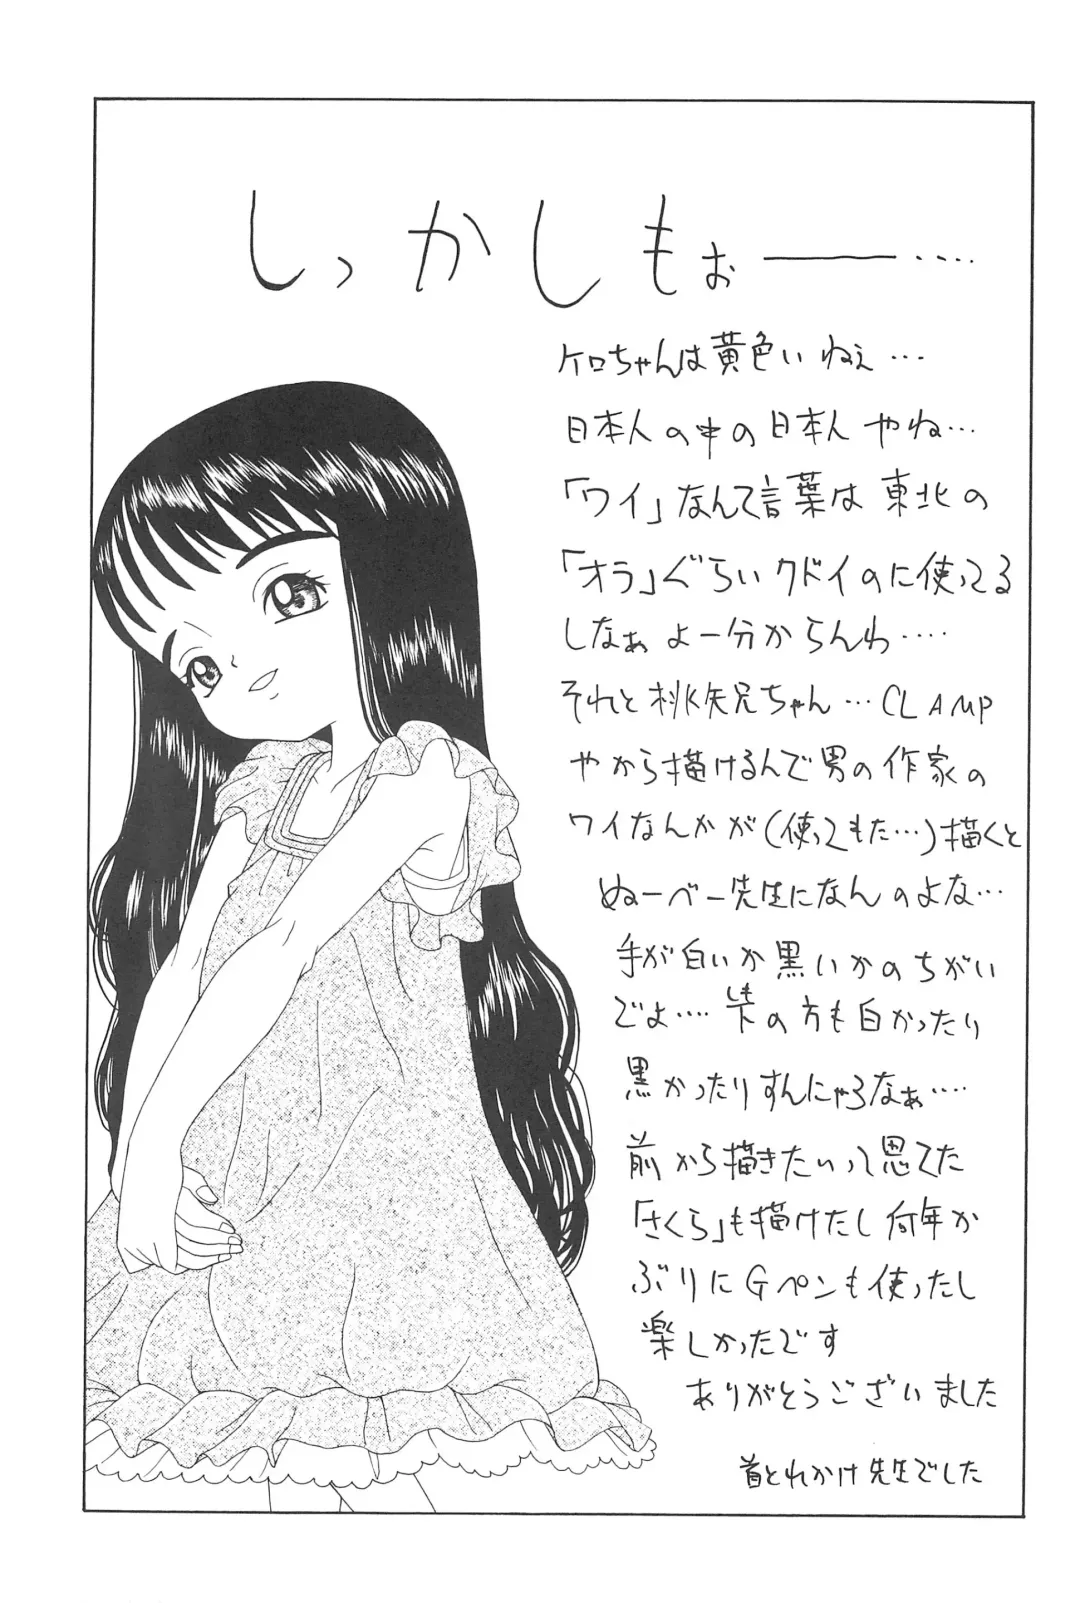 しっかしもぉー‥‥
ケロちゃんは黄色いねぇ…
日本人の中の日本人やね…
「ワイ」なんて言葉は東北の
「オラ」ぐらいクドイのに使ってる
しなぁよー分からんわ‥‥
それと桃矢兄ちゃん…CLAMP
やから描けるんで男の作家の
ワイなんかが(使ってもた…)描くと
ぬーべー先生になんのよな…
手が白いか黒いかのちがい
でよ‥‥しもの方も白かったり
黒かったりすんにゃろなぁ‥‥
前から描きたいって思てた
「さくら」も描けたし何年か
ぶりにGペンも使ったし
楽しかったです
ありがとうございました
首とれかけ先生でした